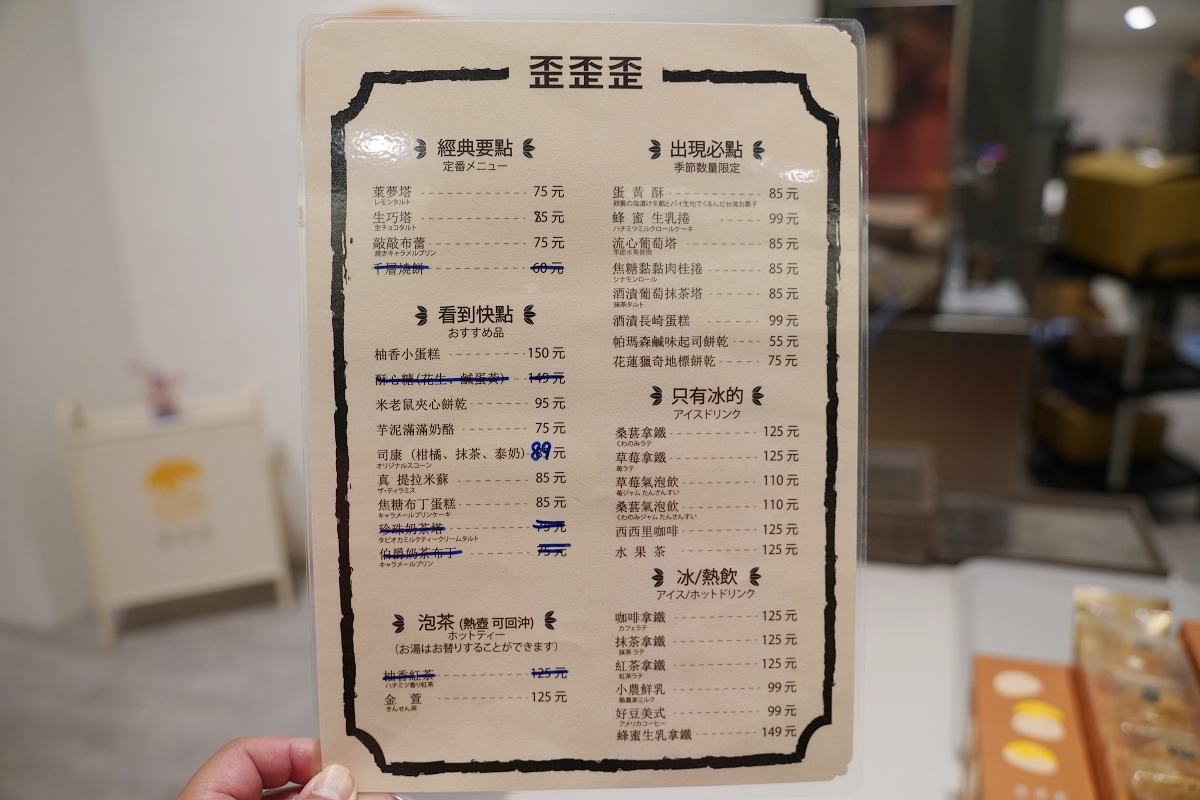 歪歪歪
經典要點
定番メニュー
萊夢塔 75元
レモンタルト
生巧塔 85元
生チョコタルト
敲敲布蕾 75元
焼きキャラメルプリン
千層燒餅 60元
看到快點
おすすめ品
柚香小蛋糕 150元
酥心糖(花生、鹹蛋黃) 149元
米老鼠夾心餅乾 95元
芋泥滿滿奶酪 75元
司康（柑橘、抹茶、泰奶) 89元
オリジナルスコーン
真 提拉米蘇 85元
ザ・ティラミス
焦糖布丁蛋糕 85元
キャラメールプリンケーキ
珍珠奶茶塔 75元
タピオカミルクティークリームタルト
伯爵奶茶布丁 75元
キャラメールプリン
泡茶 (熱壺 可回沖)
ホットティー
(お湯はお替りすることができます)
柚香紅茶 125元
ハチミツ香り紅茶
金萱 125元
きんせん茶
出現必點
季節数量限定
蛋黃酥 85元
卵黄の塩漬けを餡とパイ生地でくるんだ台湾お菓子
蜂蜜生乳捲 99元
ハチミツミルクロールケーキ
流心葡萄塔 85元
季節水果替換
焦糖黏黏肉桂捲 85元
シナモンロール
酒漬葡萄抹茶塔 85元
抹茶タルト
酒漬長崎蛋糕 99元
帕瑪森鹹味起司餅乾 55元
花蓮獵奇地標餅乾 75元
只有冰的
アイスドリンク
桑葚拿鐵 125元
くわのみラテ
草莓拿鐵 125元
苺ラテ
草莓氣泡飲 110元
苺ジャム たんさんすい
桑葚氣泡飲 110元
くわのみジャム たんさんすい
西西里咖啡 125元
水果茶 125元
冰/熱飲
アイス/ホットドリンク
咖啡拿鐵 125元
カフェラテ
抹茶拿鐵 125元
抹茶 ラテ
紅茶拿鐵 125元
紅茶ラテ
小農鮮乳 99元
酪農家ミルク
好豆美式 99元
アメリカコーヒー
蜂蜜生乳拿鐵 149元